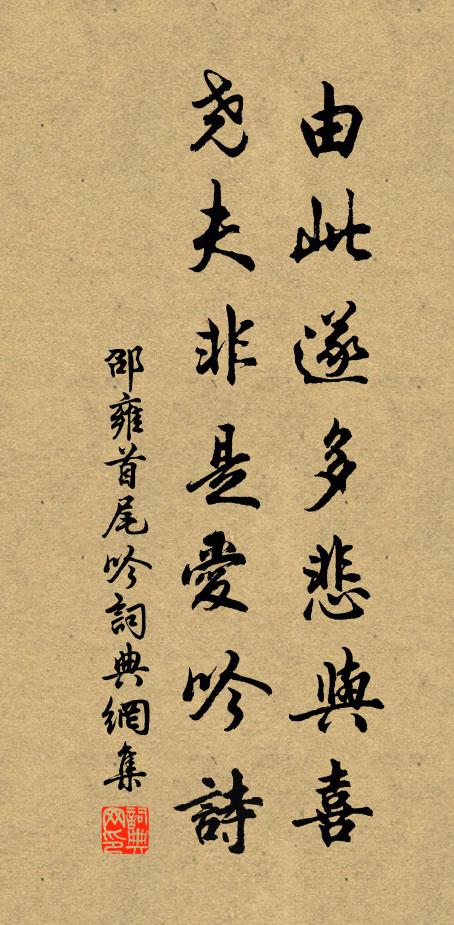 由此遂多悲與喜
堯夫非是愛吟詩
邵雍首尾吟詞典網集
詞典网印